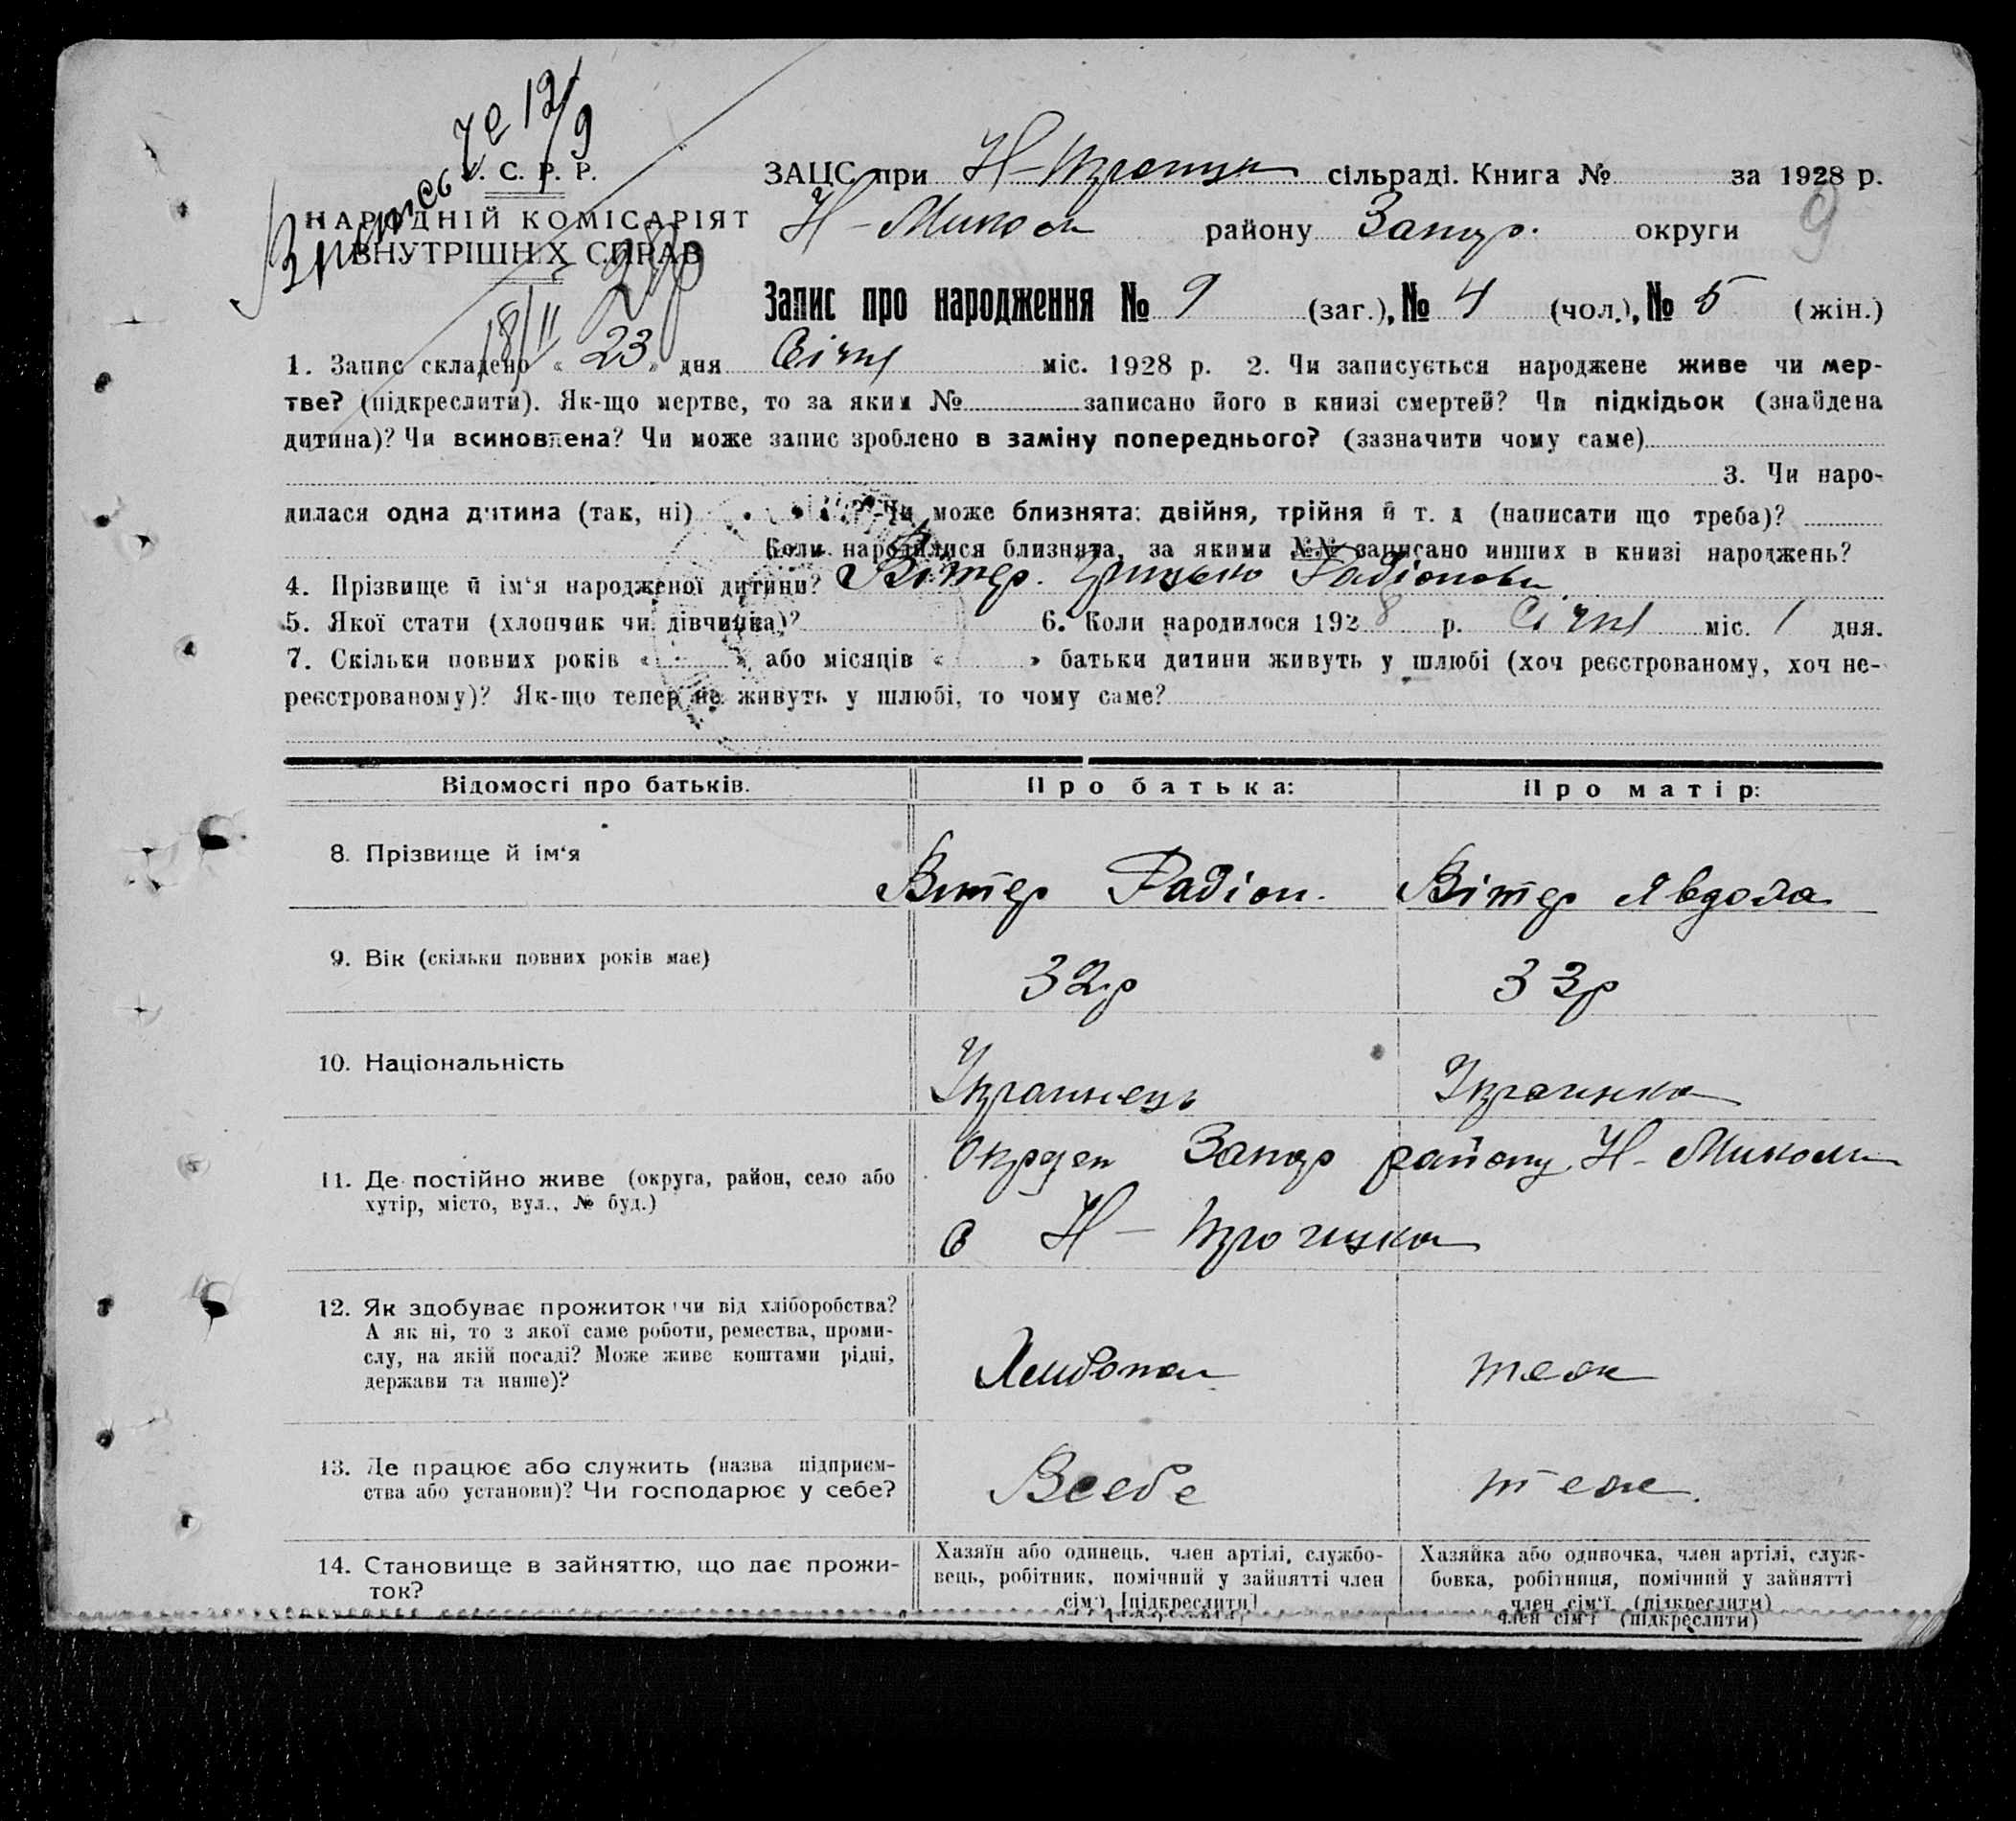 У. С. Р. Р.
НАРОДНІЙ КОМІСАРІЯТ
ВНУТРІШНІХ СПРАВ
ЗАЦС при Н- сільраді. Книга № за 1928 р.
Н- Микол району Запор. округи
9
Запис про народження № 9 (заг.), № 4 (чол.), № 5 (жін.)
1. Запис складено « 23 » дня Січня міс. 1928 р. 2. Чи записується народжене живе чи мер-
тве? (підкреслити). Як-що мертве, то за яким № записано його в книзі смертей? Чи підкідьок (знайдена
дитина)? Чи всиновлена? Чи може запис зроблено в заміну попереднього? (зазначити чому саме)
3. Чи наро-
дилася одна дитина (так, ні) ? Чи може близнята: двійня, трійня й т. д (написати що треба)?
Коли народилися близнята, за якими №№ записано инших в книзі народжень?
4. Прізвище й ім'я народженої дитини? Вітер. Грицько Радіонови
5. Якої стати (хлопчик чи дівчинка)? 6. Коли народилося 1928 р. Січня міс. 1 дня.
7. Скільки повних років « » або місяців « » батьки дитини живуть у шлюбі (хоч реєстрованому, хоч не-
реєстрованому)? Як-що тепер не живуть у шлюбі, то чому саме?
Відомості про батьків. Про батька: Про матір:
8. Прізвище й ім'я Витер Радіон. Вітер Явдоха
9. Вік (скільки повних років має) 32р 33р
10. Національність Украинець Украинка
11. Де постійно живе (округа, район, село або
хутір, місто, вул., № буд.)
Запор району Н- Микол
с Н-
12. Як здобуває прожиток чи від хліборобства?
А як ні, то з якої саме роботи, ремества, проми-
слу, на якій посаді? Може живе коштами рідні,
держави та инше)?
теж
13. Де працює або служить (назва підприєм-
ства або установи)? Чи господарює у себе?
Всебе теж.
14. Становище в зайняттю, що дає прожи-
ток?
Хазяїн або одинець, член артілі, службо-
вець, робітник, помічний у зайнятті член
сім'ї [підкреслити]
Хазяйка або одиночка, член артілі, служ-
бовка, робітниця, помічний у зайнятті
член сім'ї (підкреслити)
член сім'ї (підкреслити)